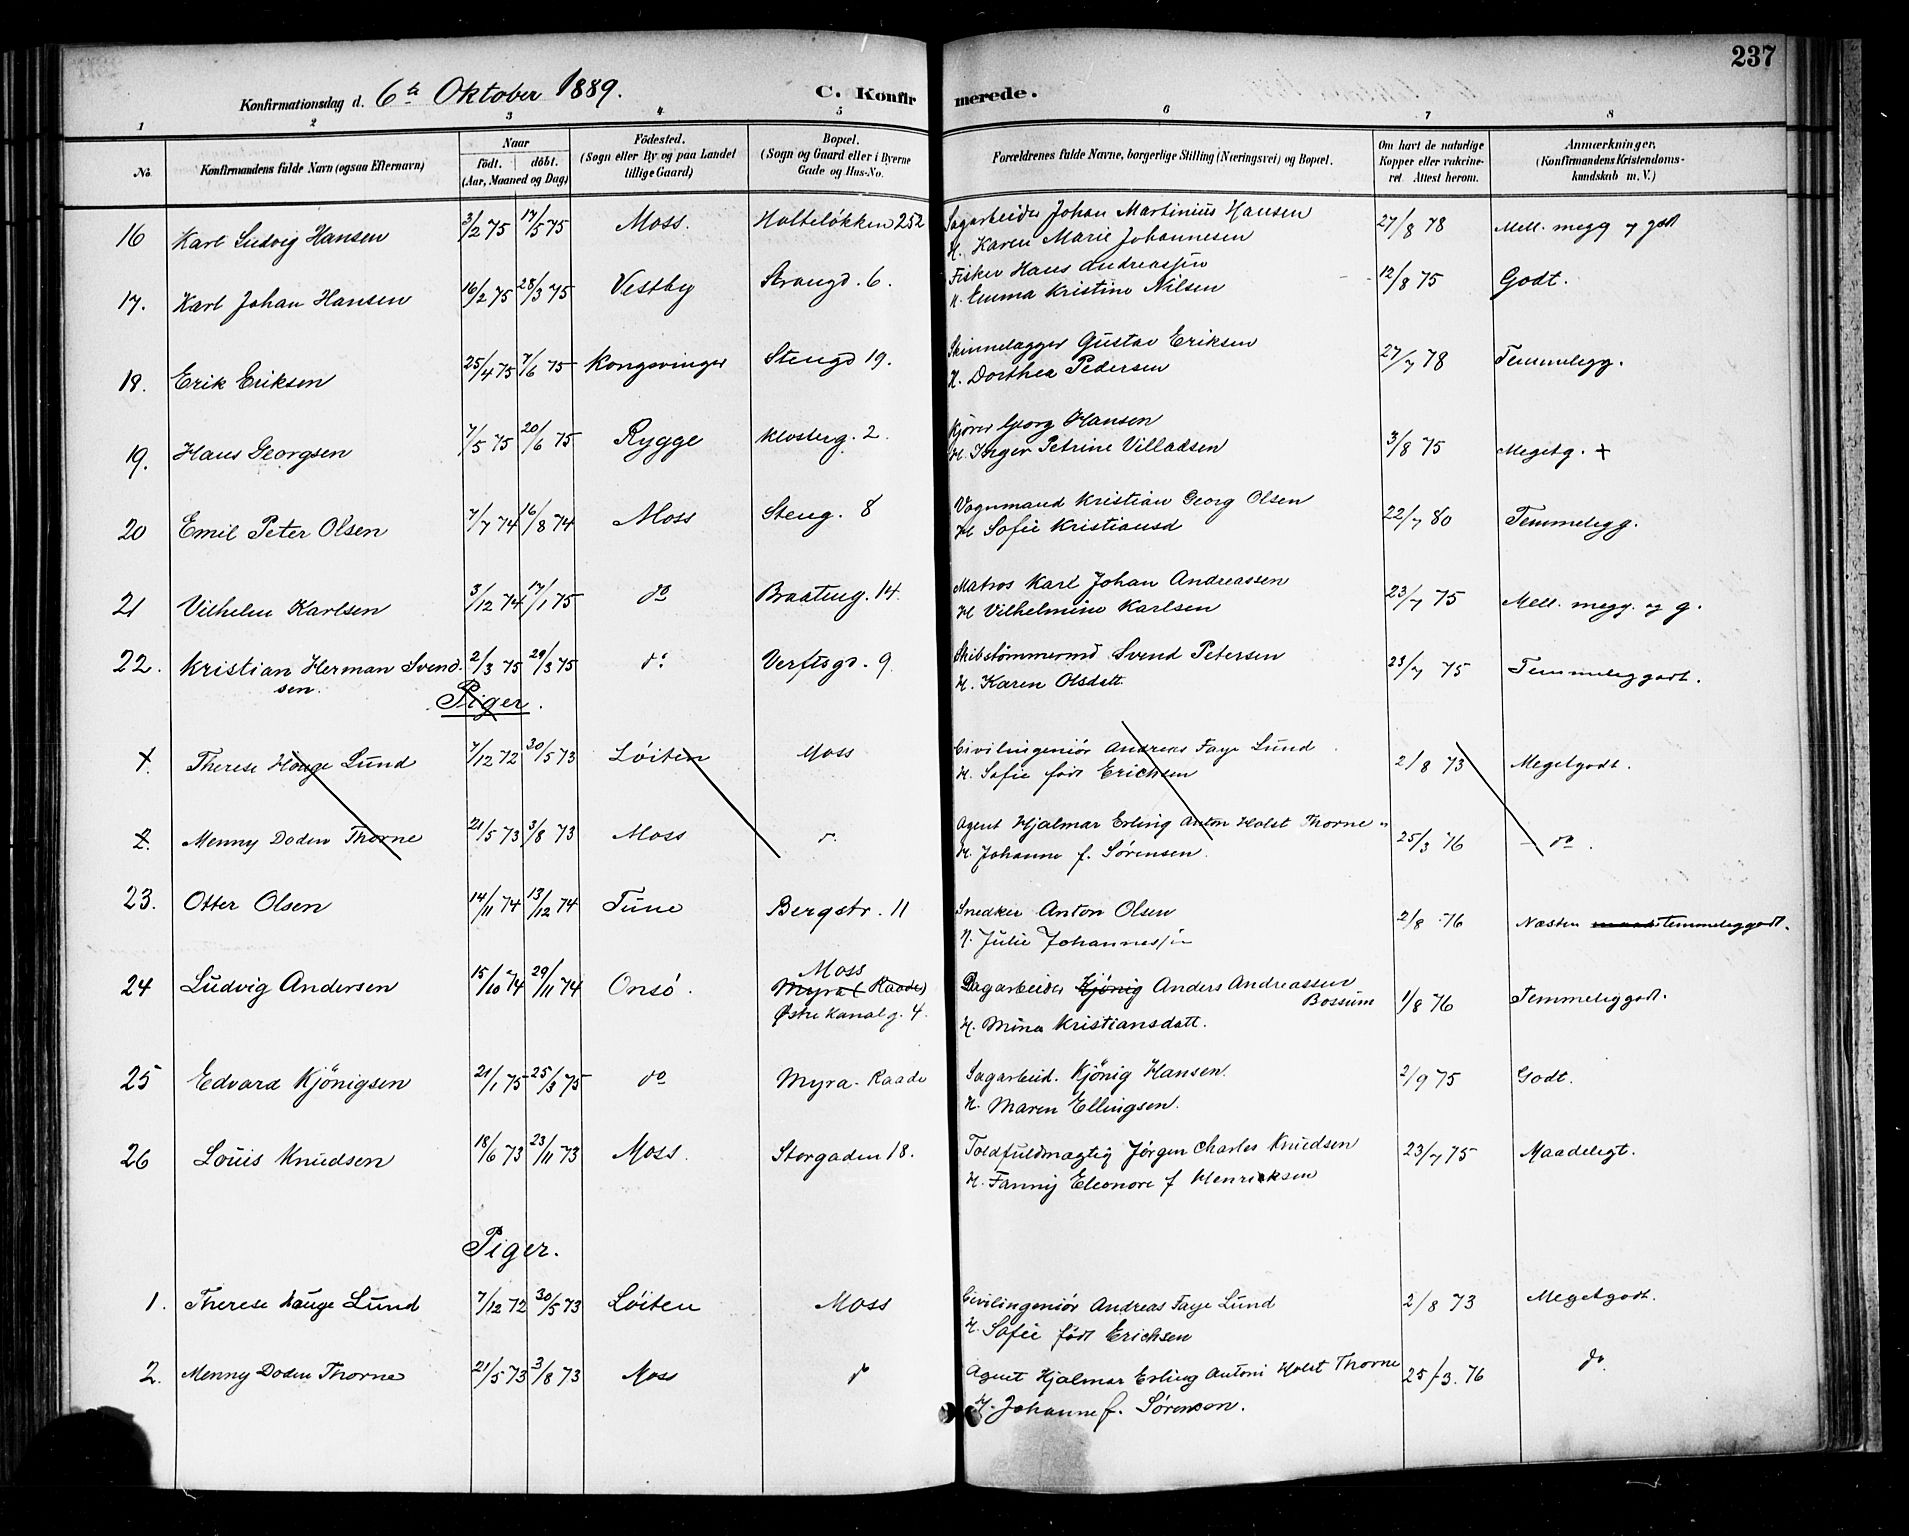 237
Konfirmationsdag d. 6te Oktober 1889. C. Konfirmerede.
1 2 3 4 5 6 7 8
No. Konfirmandens fulde Navn (ogsaa Efternavn) Naar födt. döbt. (Aar, Maaned og Dag) Födested. (Sogn eller By og paa Landet tillige Gaard) Bopæl. (Sogn og Gaard eller i Byerne Gade og Hus-No. Forældrenes fulde Navne, borgerlige Stilling (Næringsvei) og Bopæl. Om havt de naturlige Kopper eller vakcineret Attest herom. Anmærkninger, (Konfirmandens Kristendomskundskab m. V.)
16 Karl Ludvig Hansen 3/2 75 17/5 75 Moss. Holteløkken 252 Sagarbeider Johan Martinius Hansen 27/8 78 Mell. megg y godt
H. Karen Marie Johannesen
17. Karl Johan Hansen 16/2 75 28/3 75 Vestby Strangd. 6. Fisker Hans Andreassen 12/8 75 Godt.
H. Emma Kristine Nilsen
18. Erik Eriksen 25/4 75 7/6 75 Kongsvinger Stengd 19. Skindelagger Gustav Eriksen 27/7 78 Temmelegg.
H. Dorthea Pedersen
19. Hans Georgsen 7/5 75 20/6 75 Rygge Klosterg. 2. Kjører Georg Hansen 3/8 75 Megetg. +
H. Inger Petrine Villadsen
20 Emil Peter Olsen 7/7 74 16/8 74 Moss Steng. 8 Vognmand Kristian Georg Olsen 22/7 80 Temmelegg.
H Sofie Kristiansd
21 Vilhelm Karlsen 3/12 74 17/1 75 do Braateng. 14. Matros Karl Johan Andreassen 23/7 75 Mell. megg. og g.
H Vilhelmine Karlsen
22. Kristian Herman Svend- 2/3 75 29/3 75 do Verftsgd. 9. Skibstømmermd Svend Petersen 23/7 75 Temmeleggodt.
sen. H. Karen Olsdatt.
Piger.
1. Therese Hauge Lund 7/12 72 30/5 73 Löiten Moss Civilingeniör Andreas Faye Lund 2/8 73 Megetgodt.
H. Sofie født Erichsen
2. Menny Doden Thorne 21/5 73 3/8 73 Moss do Agent Hjalmar Erling Anton Holst Thorne 25/3 76 do.
H. Johanne f. Sørensen.
23. Otter Olsen 14/11 74 13/12 74 Tune Bergstr. 11 Snedker Anton Olsen 2/8 76 Næsten temmeliggodt.
H. Julie Johannessen
24 Ludvig Andersen 15/10 74 29/11 74 Onsö. Moss Myra (Raade) Dagarbeider Kjønig Anders Andreassen Bossum 1/8 76 Temmeliggodt.
Østre Kanalg. 4. H. Mina Kristiansdatt.
25 Edvard Kjönigsen 21/1 75 25/3 75 do Myra - Raade Sagarbeid. Kjönig Hansen. 2/9 75 Godt.
H. Maren Ellingsen.
26 Louis Knudsen 18/6 73 23/11 73 Moss. Storgaden 18. Toldfuldmægtig Jørgen Charles Knudsen 23/7 75 Maadeligt.
H. Fanny Eleonore f Henriksen
Piger.
1. Therese Hauge Lund 7/12 72 30/5 73 Löiten Moss Civilingeniör Andreas Faye Lund 2/8 73 Megetgodt.
H. Sofie født Erichsen
2. Menny Doden Thorne 21/5 73 3/8 73 Moss do Agent Hjalmar Erling Antoni Holst Thorne 25/3. 76 do
H. Johanne f. Sørenson.